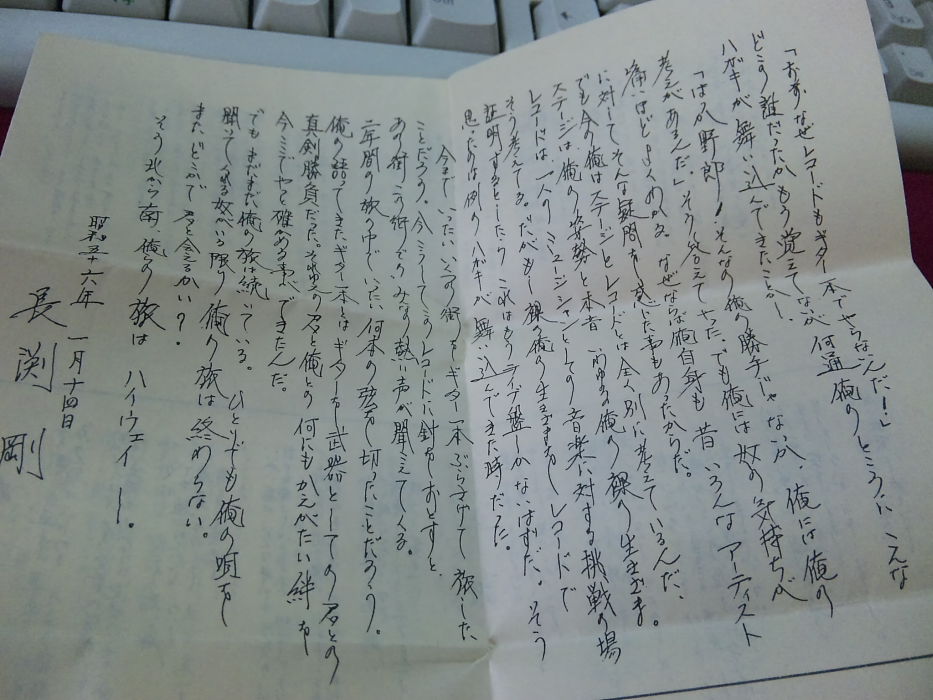 「おす、なぜレコードもギター一本でやらないんだ！」
どこの誰だったかもう覚えてないが何通俺のところに こんな
ハガキが舞い込んできたことか。
「ばか野郎！そんなの俺の勝手じゃないか、俺には俺の
考えがあるんだ。」そう答えてやった。でも俺には奴の気持ちが
痛いほどよくわかる。なぜならば俺自身も昔いろんなアーティスト
に対してそんな疑問を感じた事もあったからだ。
でも今の俺はステージとレコードとは全く別に考えているんだ、
ステージは、俺の姿勢と本音 いわゆる俺の裸の生きざま。
レコードは、一人のミュージシャンとしての音楽に対する挑戦の場
そう考えてる。だがもし裸の俺の生きざまをレコードで
証明するとしたら これはもうライブ盤しかないはずだ。そう
思ったのは例のハガキが舞い込んできた時だった。
今まで いったいいくつの街を ギター一本ぶらさげて 旅した
ことだろう。今こうしてこのレコードに針をおとすと、
あの街この街でのみんなの熱い声が聞こえてくる。
二年間の旅の中で、いったい何本の弦を切ったことだろう。
俺の語ってきたギター一本とは ギターを武器としての君との
真剣勝負だった。それゆえ君と俺との何にもかえがたい絆を
今ここでやっと確かめる事ができたんだ。
でもまだまだ俺の旅は続いている。ひとりでも俺の唄を
聞いてくれる奴がいる限り 俺の旅は終わらない。
また、どこかで 君と会えるかい？
そう北から南、俺らの旅は ハイウェイ ー。
昭和五十六年 一月十四日
長渕 剛